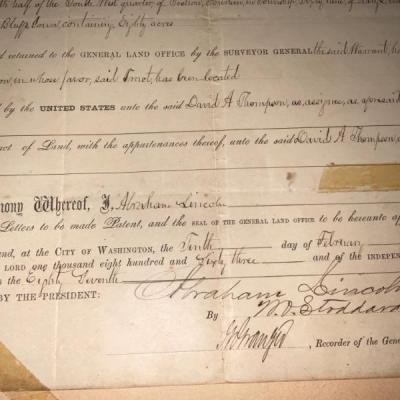 half of the South West quarter of Section, fourteen, in Township
Bluffs Iowa, containing Eighty acres
returned to the GENERAL LAND OFFICE by the SURVEYOR GENERAL the said Warrant, h
in whose favor, said Tract, has been located
by the UNITED STATES unto the said David A Thompson, as, assignee, as, aforesaid
act of Land, with the appurtenances thereof, unto the said David A Thompson, a
mony Whereof, I, Abraham Lincoln
Letters to be made Patent, and the SEAL OF THE GENERAL LAND OFFICE to be hereunto
and, at the CITY OF WASHINGTON, the Tenth day of February
LORD one thousand eight hundred and Sixty three and of the INDEPEN
the Eighty Seventh
BY THE PRESIDENT: Abraham Lincoln
By W. O. Stoddard
Recorder of the Gene